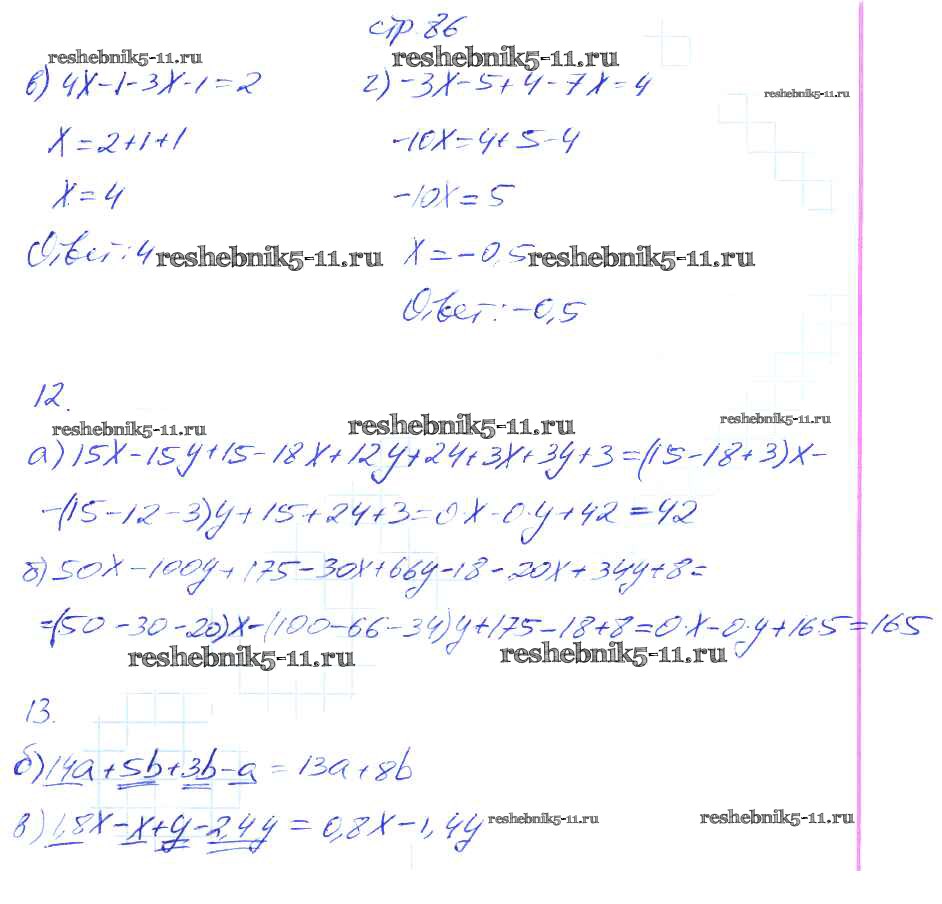 стр. 86
reshebnik5-11.ru reshebnik5-11.ru
в) 4x-1-3x-1=2 г) -3x-5+4-7x=4 reshebnik5-11.ru
x=2+1+1 -10x=4+5-4
x=4 -10x=5
Ответ: 4 reshebnik5-11.ru x=-0,5 reshebnik5-11.ru
Ответ: -0,5
12.
reshebnik5-11.ru reshebnik5-11.ru reshebnik5-11.ru
а) 15x-15y+15-18x+12y+24+3x+3y+3=(15-18+3)x-
-(15-12-3)y+15+24+3=0·x-0·y+42=42
б) 50x-100y+175-30x+66y-18-20x+34y+8=
=(50-30-20)x-(100-66-34)y+175-18+8=0·x-0·y+165=165
reshebnik5-11.ru reshebnik5-11.ru
13.
б) 14a+5b+3b-a=13a+8b
в) 1,8x-x+y-2,4y=0,8x-1,4y reshebnik5-11.ru reshebnik5-11.ru